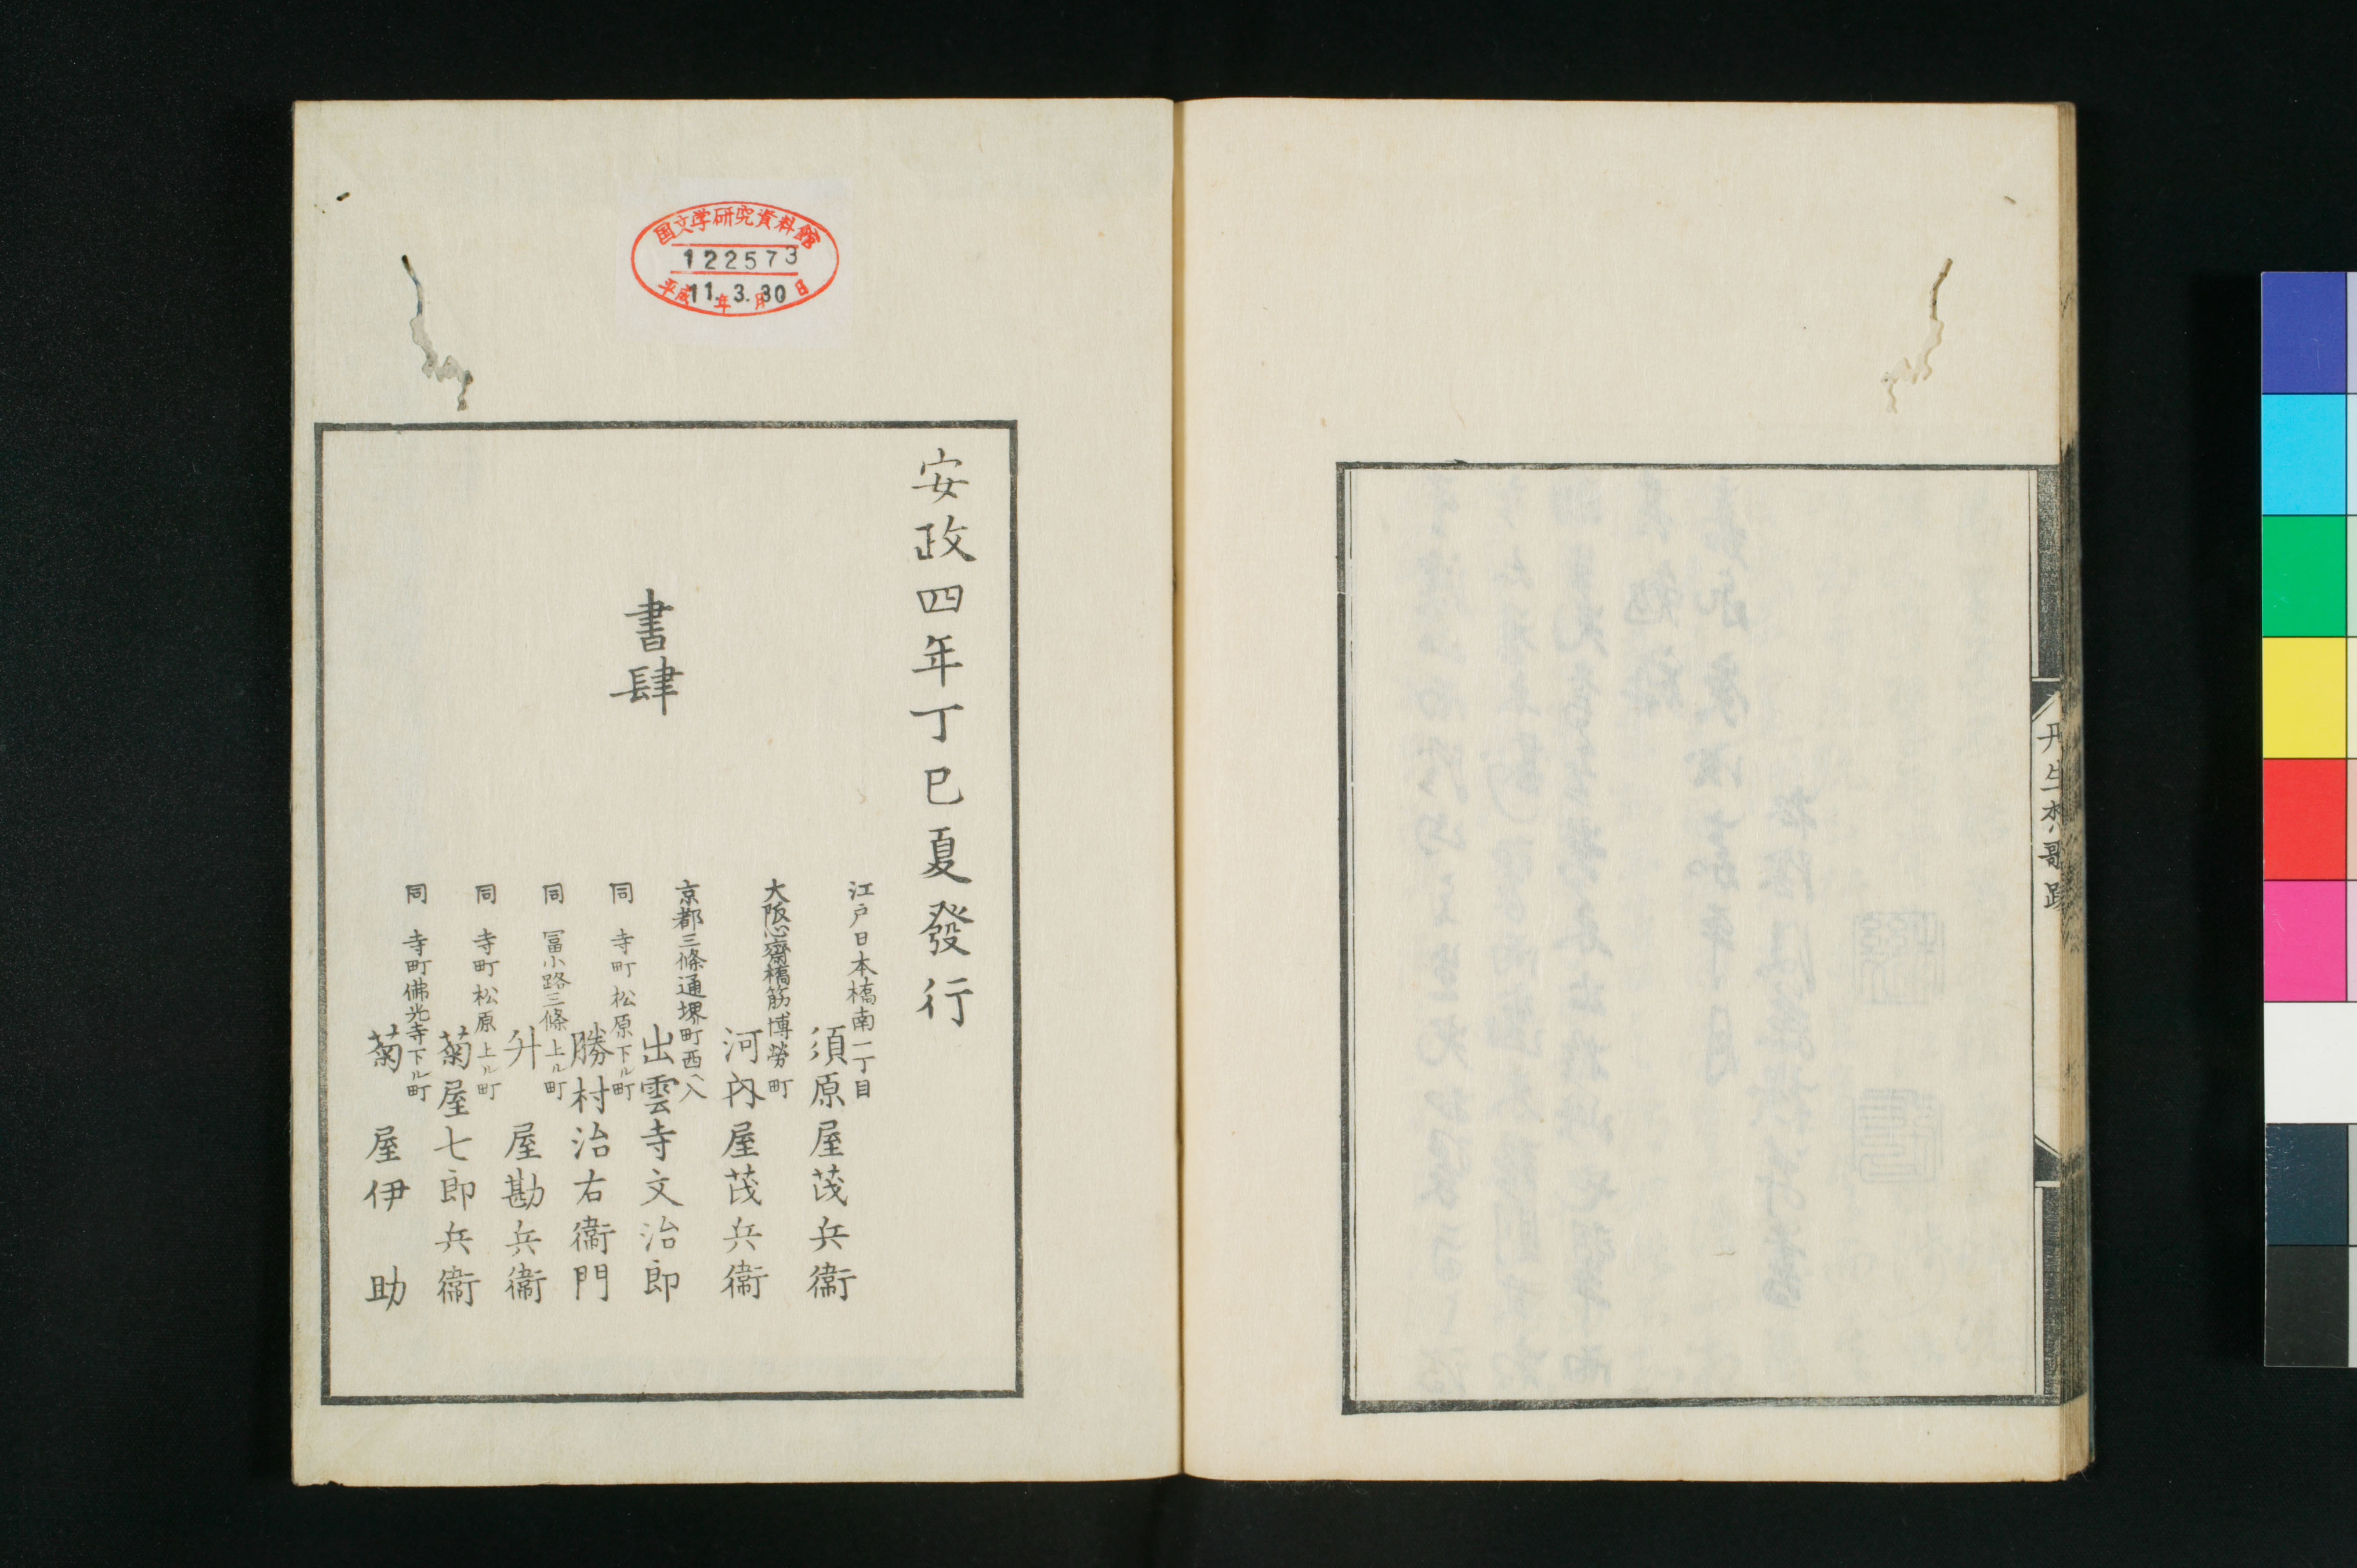 丹生樵歌跋
国文学研究資料館
122573
平成11年3.月30日
安政四年丁巳夏發行
書肆
江戸日本橋南一丁目
須原屋茂兵衞
大阪心齋橋筋博勞町
河内屋茂兵衞
京都三條通堺町西ヘ入
出雲寺文治郎
同 寺町松原下ル町
勝村治右衞門
同 冨小路三條上ル町
升屋勘兵衞
同 寺町松原上ル町
菊屋七郎兵衞
同 寺町佛光寺下ル町
菊屋伊助